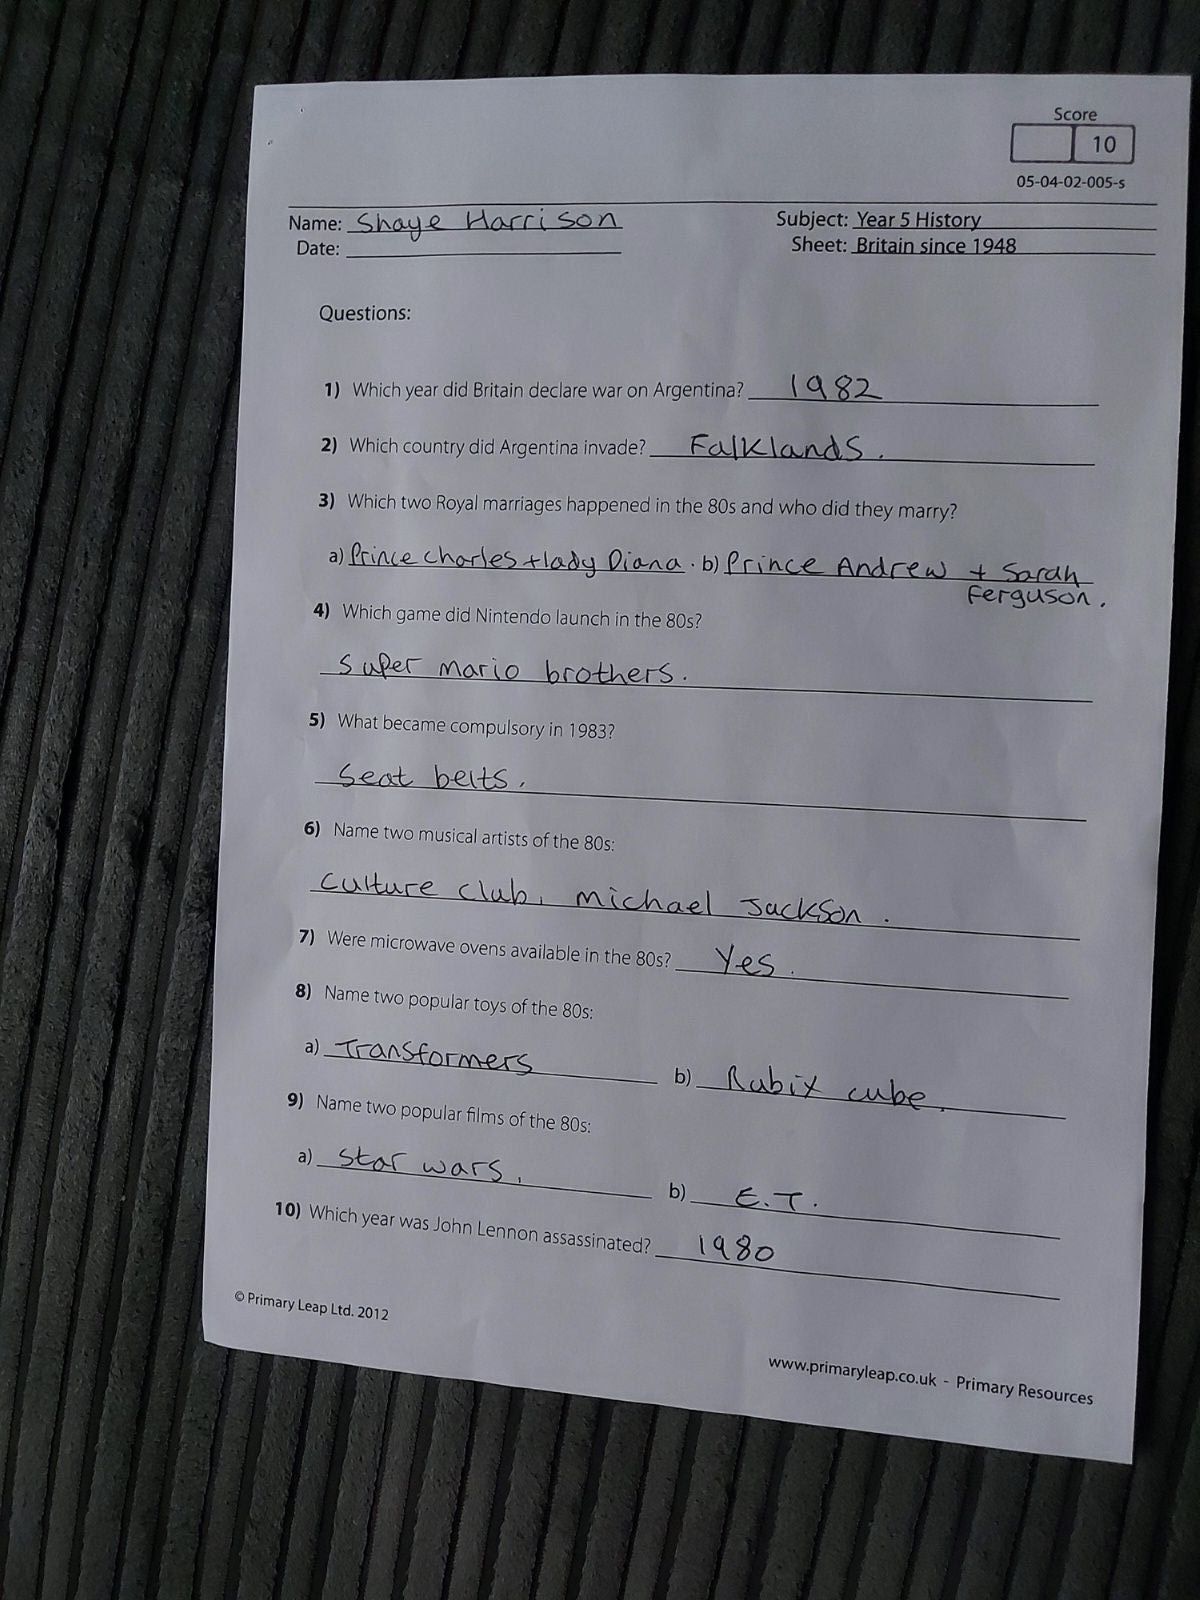 Score
10
05-04-02-005-s
Name: Shaye Harrison
Subject: Year 5 History
Date:
Sheet: Britain since 1948
Questions:
1) Which year did Britain declare war on Argentina? 1982
2) Which country did Argentina invade? Falklands.
3) Which two Royal marriages happened in the 80s and who did they marry?
a) Prince charles + lady Diana. b) Prince Andrew + Sarah
Ferguson.
4) Which game did Nintendo launch in the 80s?
Super mario brothers.
5) What became compulsory in 1983?
Seat belts.
6) Name two musical artists of the 80s:
Culture club, michael Jackson.
7) Were microwave ovens available in the 80s? Yes.
8) Name two popular toys of the 80s:
a) Transformers b) Rubix cube.
9) Name two popular films of the 80s:
a) Star wars, b) E.T.
10) Which year was John Lennon assassinated? 1980
© Primary Leap Ltd. 2012
www.primaryleap.co.uk - Primary Resources